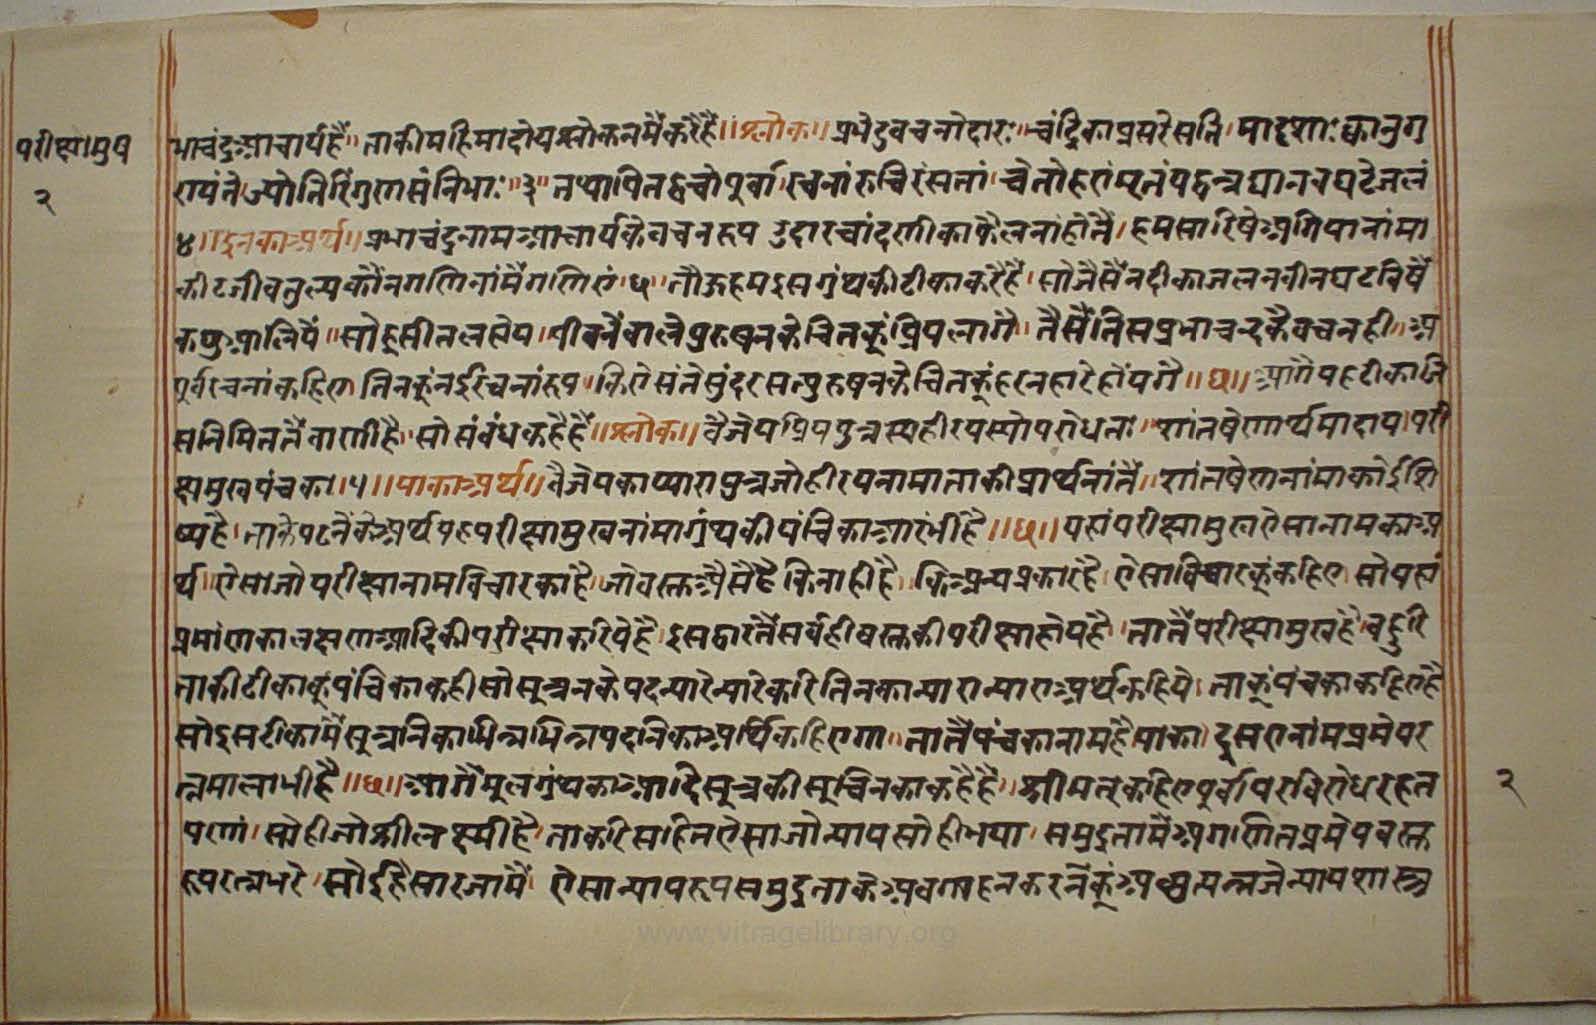 परीक्षामुष
२
भाचंद्रआचार्यहैं॥ ताकीमहिमादोयश्लोकनमैंकरैहैं॥॥श्लोक॥ प्रभेंदुवचनोदार॥ चंद्रिकाप्रसरेसति॥ मादृशाःक्वानुग
ण्यंते॥ ज्योतिरिंगणसंनिभाः॥३॥ तथापितद्वचोपूर्वा॥ रचनांरुचिरंसतां॥ चेतोहरंभृतंयद्वन्नद्यानवघटेजलं
४॥॥इनकाअर्थ॥ प्रभाचंद्रनामआचार्यकेवचनरूप उदारचांदणीकाफैलनांहोतैं॥ हमसारिषेअगियानांमा
कीटजीवतुल्यकौंनगणतिनांमैंगणिए॥५॥ तौऊहमइसग्रंथकीटीकाकरैहैं॥ सोजैसैंनदीकाजलनवीनघटविषैं
कछुआलियै॥ सोहूसीतलसोय॥ पीवनेंवालेपुरुषनकेचितकूंप्रियलागै॥ तैसैंतिसप्रभाचन्द्रकेवचनही॥ अ
पूर्वरचनांकहिए तिनकूंनईरचनांरूप॥ कियेसंतेसुंदरसत्पुरुषनकेचितकूंहरनहारेहोंयगै॥॥५॥ आगैयहटीकाजि
सनिमिततैंवाणीहै॥ सोसंबंधकहैहैं॥॥श्लोक॥ वैजेयप्रियपुत्रस्यहीरपस्योपरोधतः॥ शांतषेणार्थमादाय॥ परी
क्षामुखपंचका॥५॥॥याकाअर्थ॥ वैजेयकाप्यारापुत्रजोहीरपनामाताकीप्रार्थनांतैं॥ शांतषेणनांमाकोईशि
ष्यहै॥ ताकेपढनैंकेअर्थयहपरीक्षामुखनांमाग्रंथकीपंचिकाआरंभीहै॥॥५॥ यहांपरीक्षामुखऐसानामकाअ
र्थ॥ ऐसाजोपरीक्षानामविचारकाहै॥ जोवस्तुऐसैंहैकिनाहीहै॥ किअन्यप्रकारहै॥ ऐसाविचारकूंकहिए॥ सोयहां
प्रमांणकालक्षणआदिकीपरीक्षाकरियेहै॥ इसद्वारतैंसर्वहीवस्तुकीपरीक्षाहोयहै॥ तातैंपरीक्षामुखहै॥ बहुरि
ताकीटीकाकूंपंचिकाकहीसोसूत्रनकेपदन्यारेन्यारेकरितिनकान्यारान्याराअर्थकहिये॥ ताकूंपंचकाकहिएहै
सोइसटीकामैंसूत्रनिकाभिन्नभिन्नपदनिकाअर्थकहिएगा॥ तातैंपंचकानामहैयाका॥ दूसरानांमप्रमेयर
त्नमालाभीहै॥॥५॥ आगैंमूलग्रंथकाआदिसूत्रकीसूचनिकाकहैहैं॥ श्रीमतकहिएपूर्वापरविरोधरहित
पणां॥ सोहीजोश्रीलक्ष्मीहै॥ ताकरिसहितऐसाजोन्यायसोहीभया॥ समुद्रतामैंअगणितप्रमेयवस्तु
रूपरत्नभरे॥ सोईहैसारजामैं॥ ऐसान्यायरूपसमुद्रताकेअवगाहनकरनेंकूंअव्युत्पन्नजेन्यायशास्त्र
२
www.vitragelibrary.org